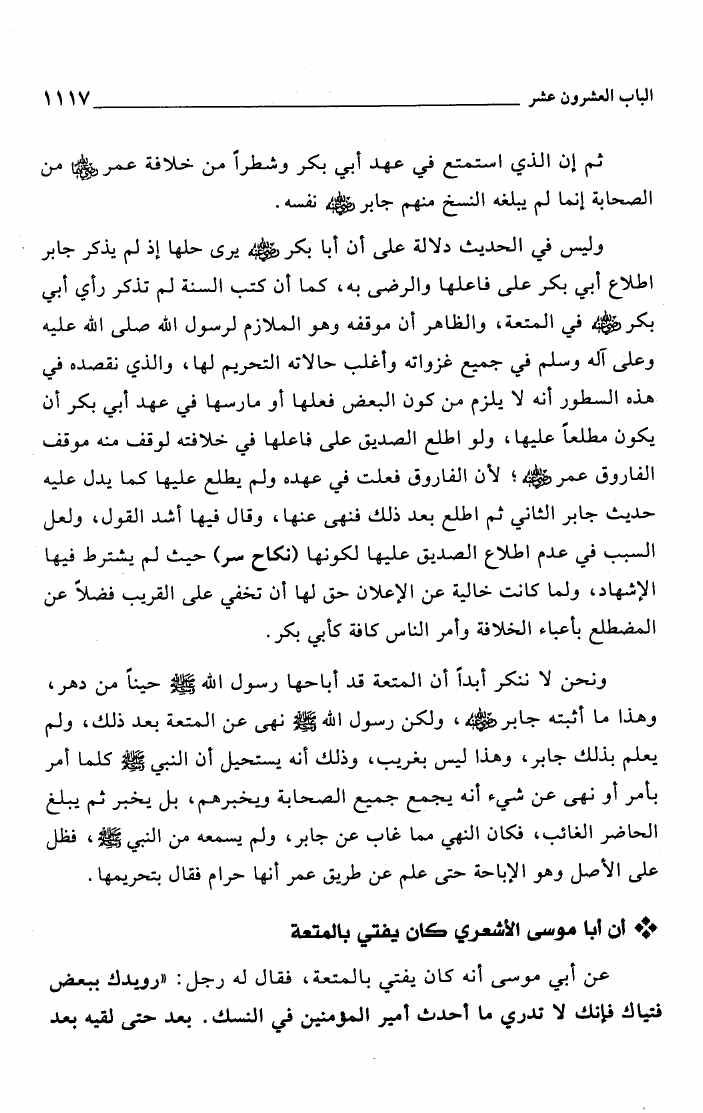 الباب العشرون عشر ١١١٧
ثم إن الذي استمتع في عهد أبي بكر وشطراً من خلافة عمر رضي الله عنه من
الصحابة إنما لم يبلغه النسخ منهم جابر رضي الله عنه نفسه.
وليس في الحديث دلالة على أن أبا بكر رضي الله عنه يرى حلها إذ لم يذكر جابر
اطلاع أبي بكر على فاعلها والرضى به، كما أن كتب السنة لم تذكر رأي أبي
بكر رضي الله عنه في المتعة، والظاهر أن موقفه وهو الملازم لرسول الله صلى الله عليه
وعلى آله وسلم في جميع غزواته وأغلب حالاته التحريم لها، والذي نقصده في
هذه السطور أنه لا يلزم من كون البعض فعلها أو مارسها في عهد أبي بكر أن
يكون مطلعاً عليها، ولو اطلع الصديق على فاعلها في خلافته لوقف منه موقف
الفاروق عمر رضي الله عنه؛ لأن الفاروق فعلت في عهده ولم يطلع عليها كما يدل عليه
حديث جابر الثاني ثم اطلع بعد ذلك فنهى عنها، وقال فيها أشد القول، ولعل
السبب في عدم اطلاع الصديق عليها لكونها (نكاح سر) حيث لم يشترط فيها
الإشهاد، ولما كانت خالية عن الإعلان حق لها أن تخفي على القريب فضلاً عن
المضطلع بأعباء الخلافة وأمر الناس كافة كأبي بكر.
ونحن لا ننكر أبداً أن المتعة قد أباحها رسول الله ﷺ حيناً من دهر،
وهذا ما أثبته جابر رضي الله عنه، ولكن رسول الله ﷺ نهى عن المتعة بعد ذلك، ولم
يعلم بذلك جابر، وهذا ليس بغريب، وذلك أنه يستحيل أن النبي ﷺ كلما أمر
بأمر أو نهى عن شيء أنه يجمع جميع الصحابة ويخبرهم، بل يخبر ثم يبلغ
الحاضر الغائب، فكان النهي مما غاب عن جابر، ولم يسمعه من النبي ﷺ، فظل
على الأصل وهو الإباحة حتى علم عن طريق عمر أنها حرام فقال بتحريمها.
❖ أن أبا موسى الأشعري كان يفتي بالمتعة
عن أبي موسى أنه كان يفتي بالمتعة، فقال له رجل: «رويدك ببعض
فتياك فإنك لا تدري ما أحدث أمير المؤمنين في النسك. بعد حتى لقيه بعد